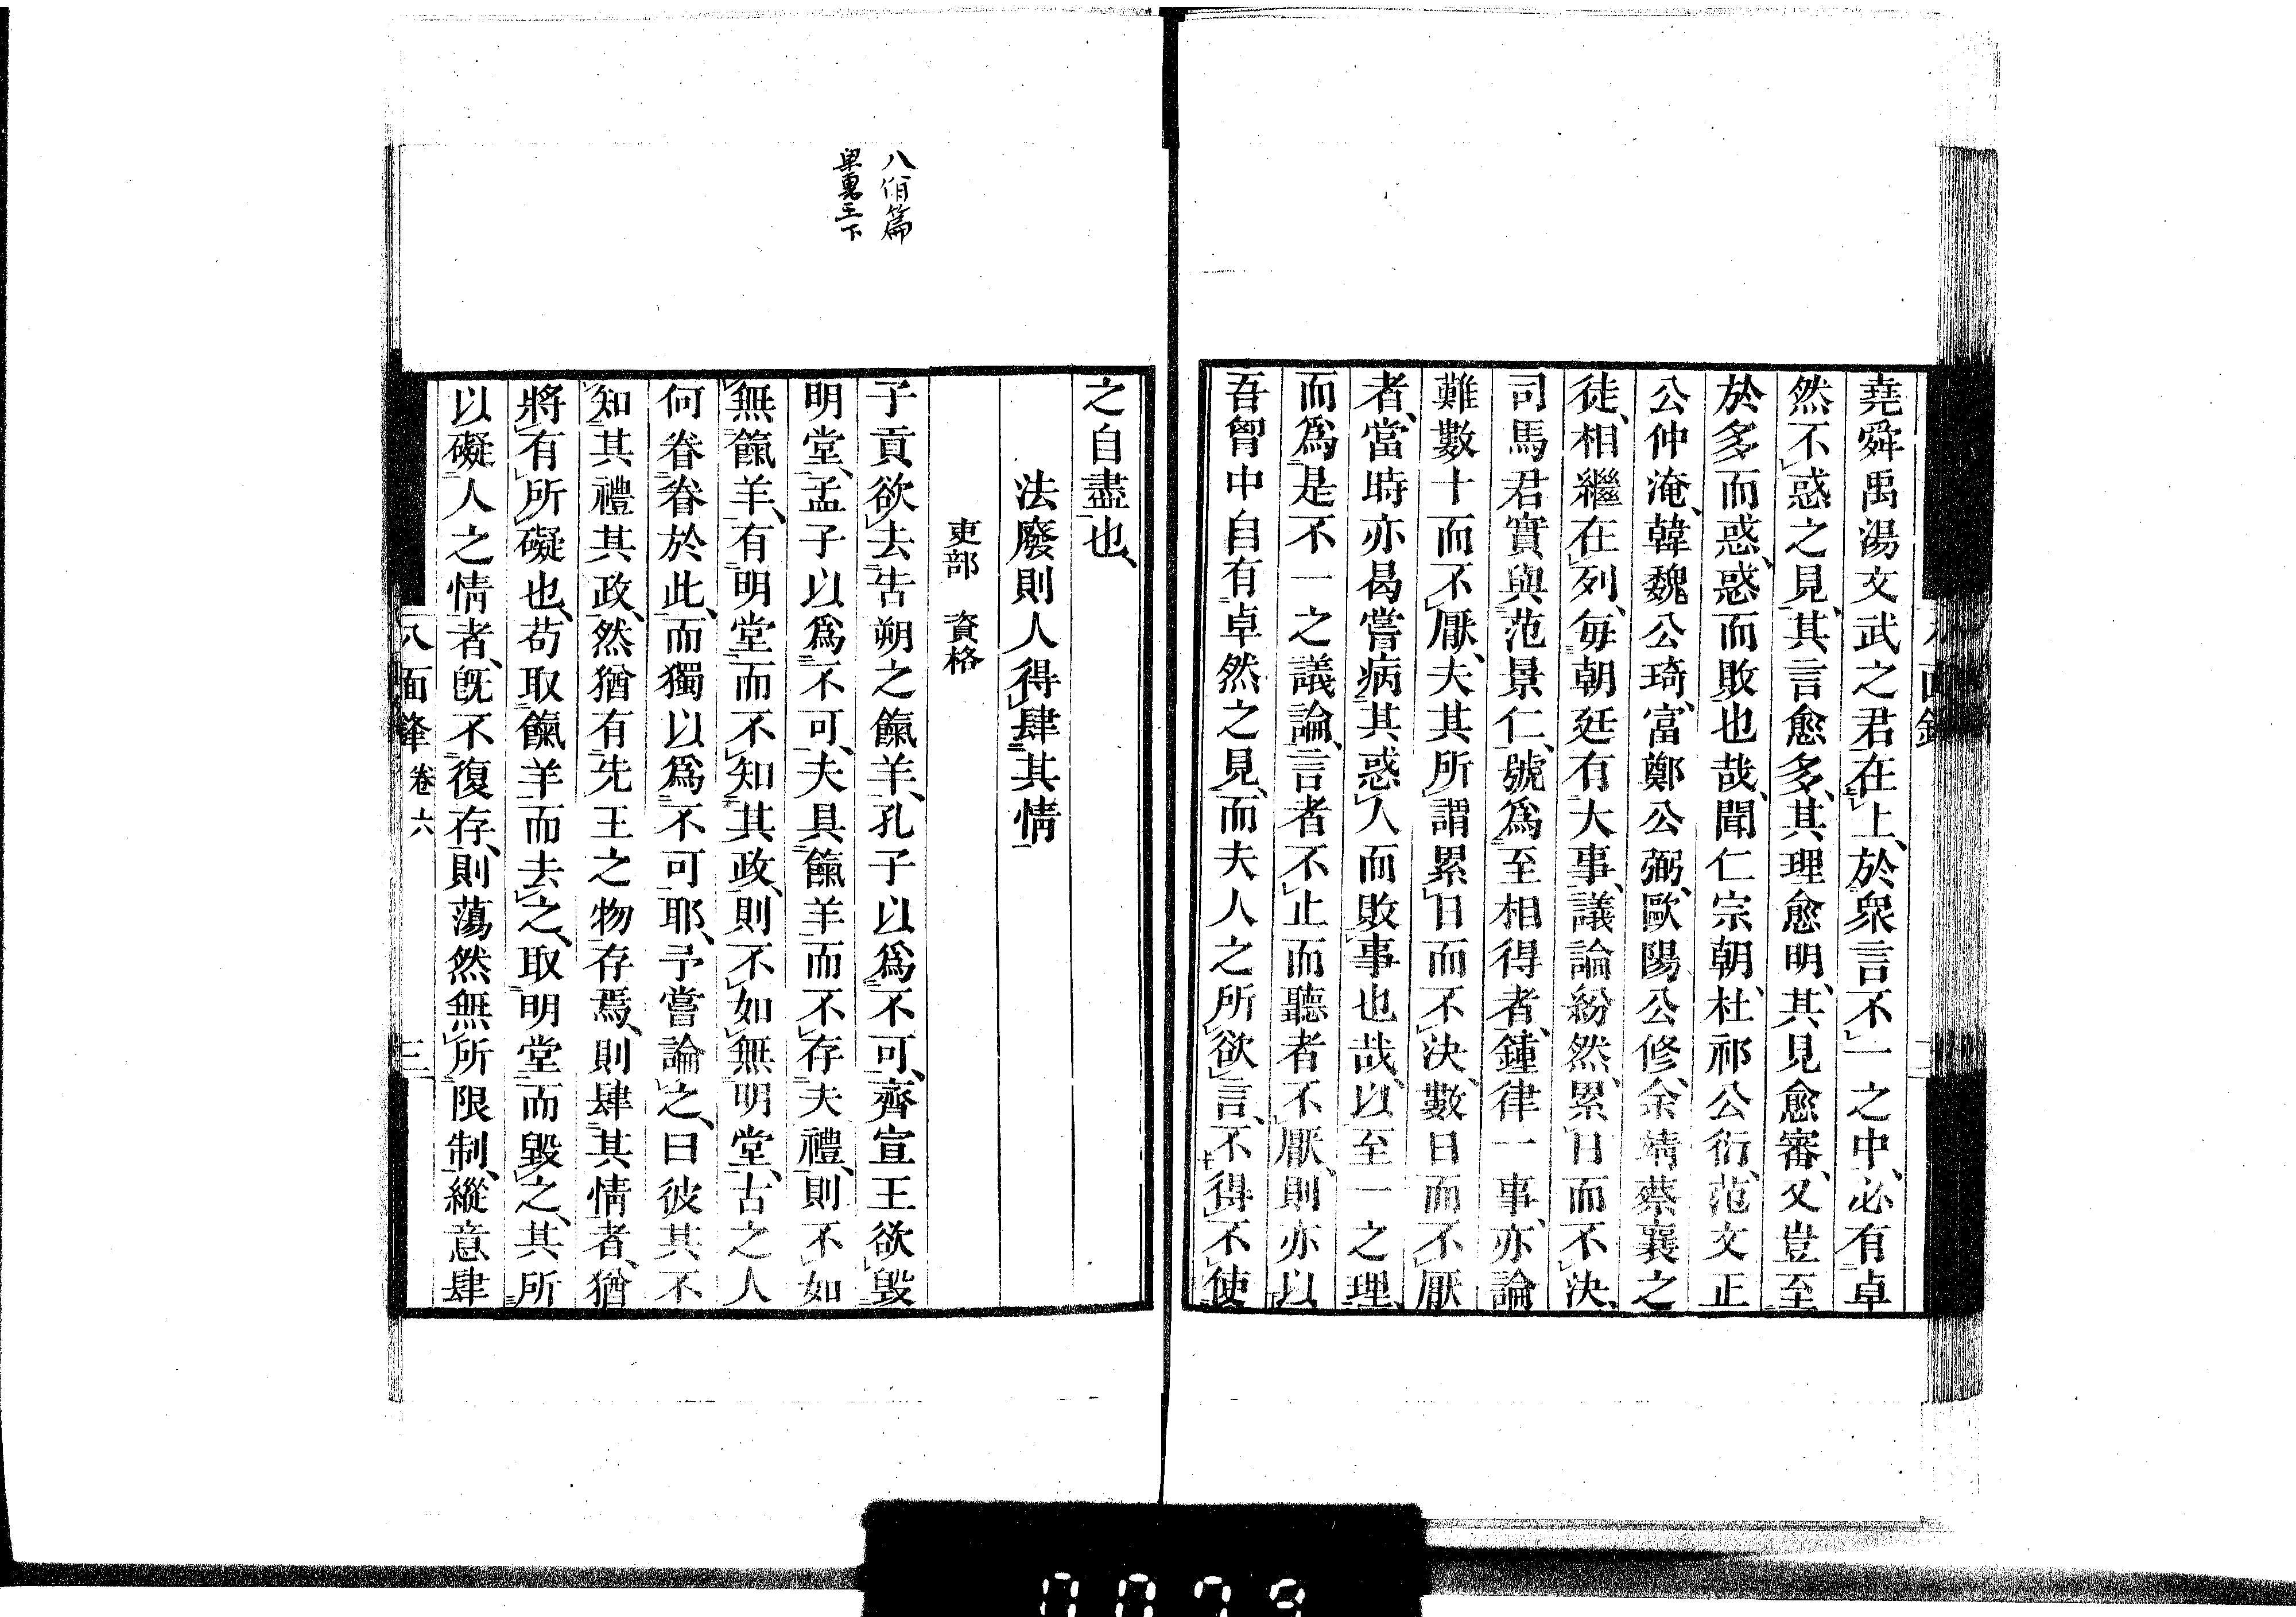 堯舜禹湯文武之君在上、於衆言不一之中、必有卓
然不惑之見、其言愈多、其理愈明、其見愈審、又豈至
於多而惑、惑而敗也哉、聞仁宗朝、杜祁公衍、范文正
公仲淹、韓魏公琦、富鄭公弼、歐陽公修、余靖蔡襄之
徒、相繼在列、每朝廷有大事、議論紛然、累日而不決、
司馬君實與范景仁、號爲至相得者、鍾律一事、亦論
難數十而不厭、夫其所謂累日而不決、數日而不厭
者、當時亦曷嘗病其惑人而敗事也哉、以至一之理、
而爲是不一之議論、言者不止而聽者不厭、則亦以
吾胷中自有卓然之見、而夫人之所欲言、不得不使
之自盡也、
法廢則人得肆其情
吏部 資格
子貢欲去告朔之餼羊、孔子以爲不可、齊宣王欲毀
明堂、孟子以爲不可、夫具餼羊而不存夫禮、則不如
無餼羊、有明堂而不知其政、則不如無明堂、古之人
何眷眷於此、而獨以爲不可耶、予嘗論之、曰彼其不
知其禮其政、然猶有先王之物存焉、則肆其情者、猶
將有所礙也、苟取餼羊而去之、取明堂而毀之、其所
以礙人之情者、旣不復存、則蕩然無所限制、縱意肆
八面鋒 卷六 三
八佾篇
梁惠王下
0079